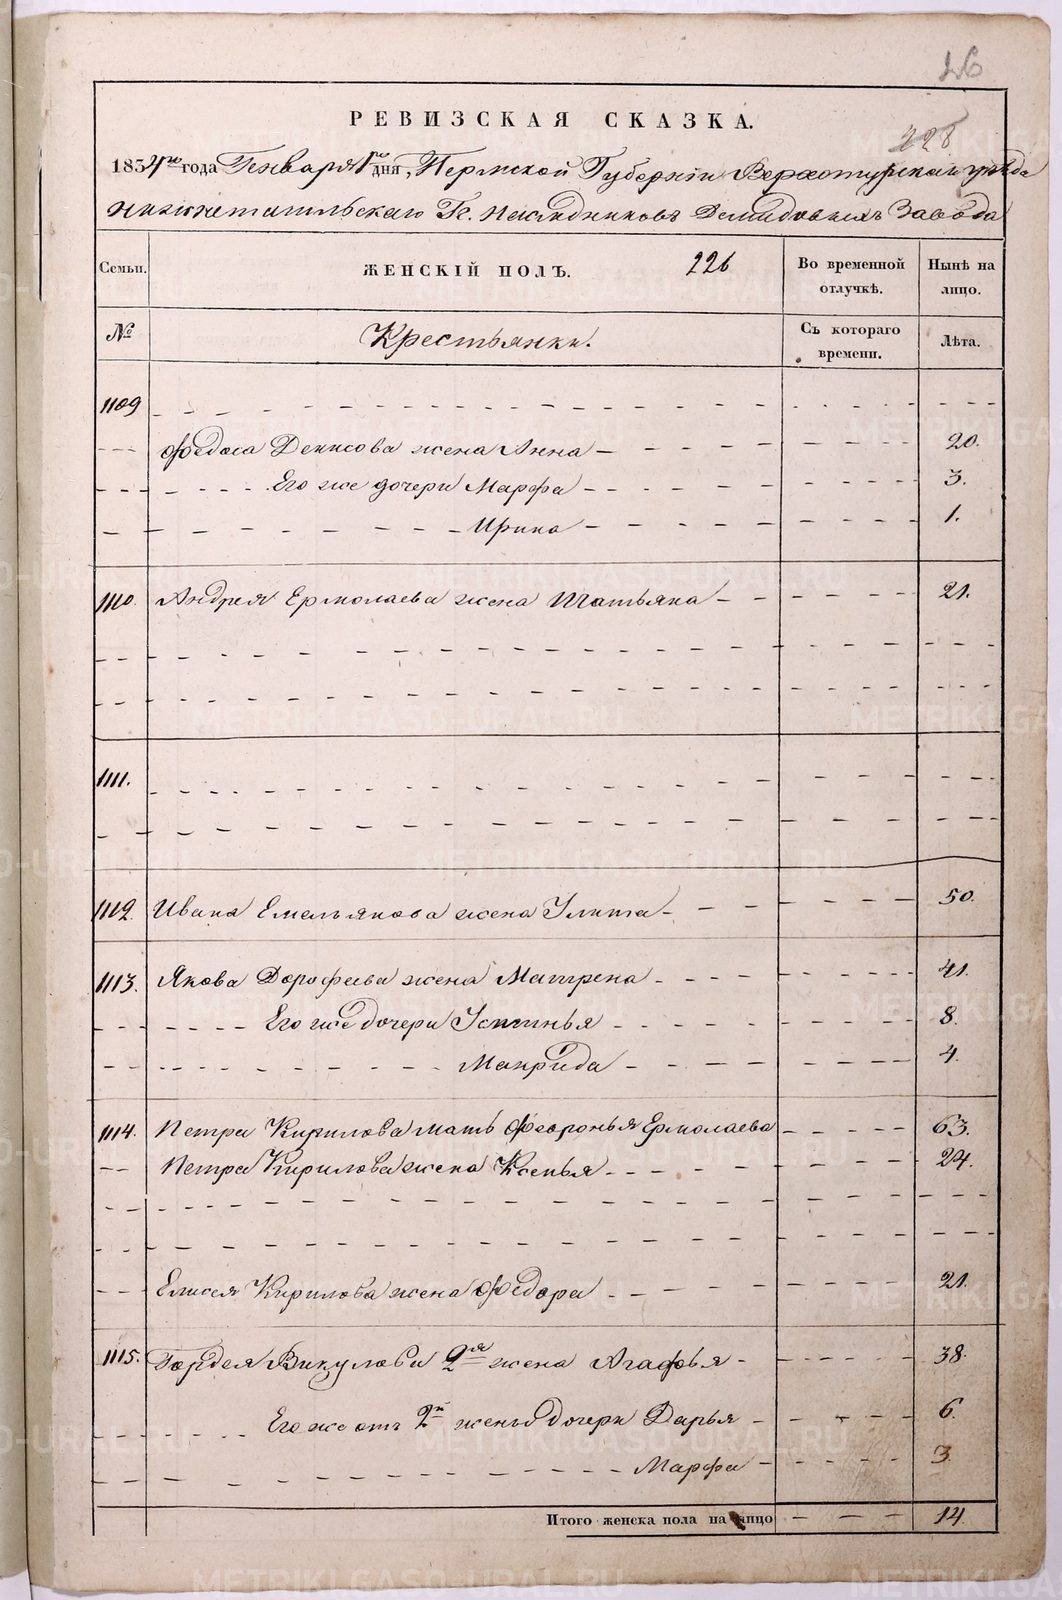 26
РЕВИЗСКАЯ СКАЗКА.
228
1834го года Генваря 1го дня, Пермской Губернiи Верхотурскаго уѣзда
Нижнетагильскаго Гг. Наслѣдниковъ Демидовыхъ Завода
Семьи. ЖЕНСКІЙ ПОЛЪ. 226 Во временной отлучкѣ. Нынѣ на лицо.
№ Крестьянки. Съ котораго времени. Лѣта.
1109
Федоса Денисова жена Анна 20.
Его же дочери Марфа 3.
Ирина 1.
1110. Андрея Ермолаева жена Татьяна 21.
1111.
1112. Ивана Емельянова жена Улита 50.
1113. Якова Дорофеева жена Матрена 41.
Его же дочери Устинья 8.
Макрида 4.
1114. Петра Кирилова мать Февронья Ермолаева 63.
Петра Кирилова жена Ксенья 24.
Елисея Кирилова жена Федора 21.
1115. Гордея Викулова 2я жена Агафья 38.
Его же отъ 2й жены дочери Дарья 6.
Марфа 3.
Итого женска пола на лицо 14.
METRIKI.GASO-URAL.RU